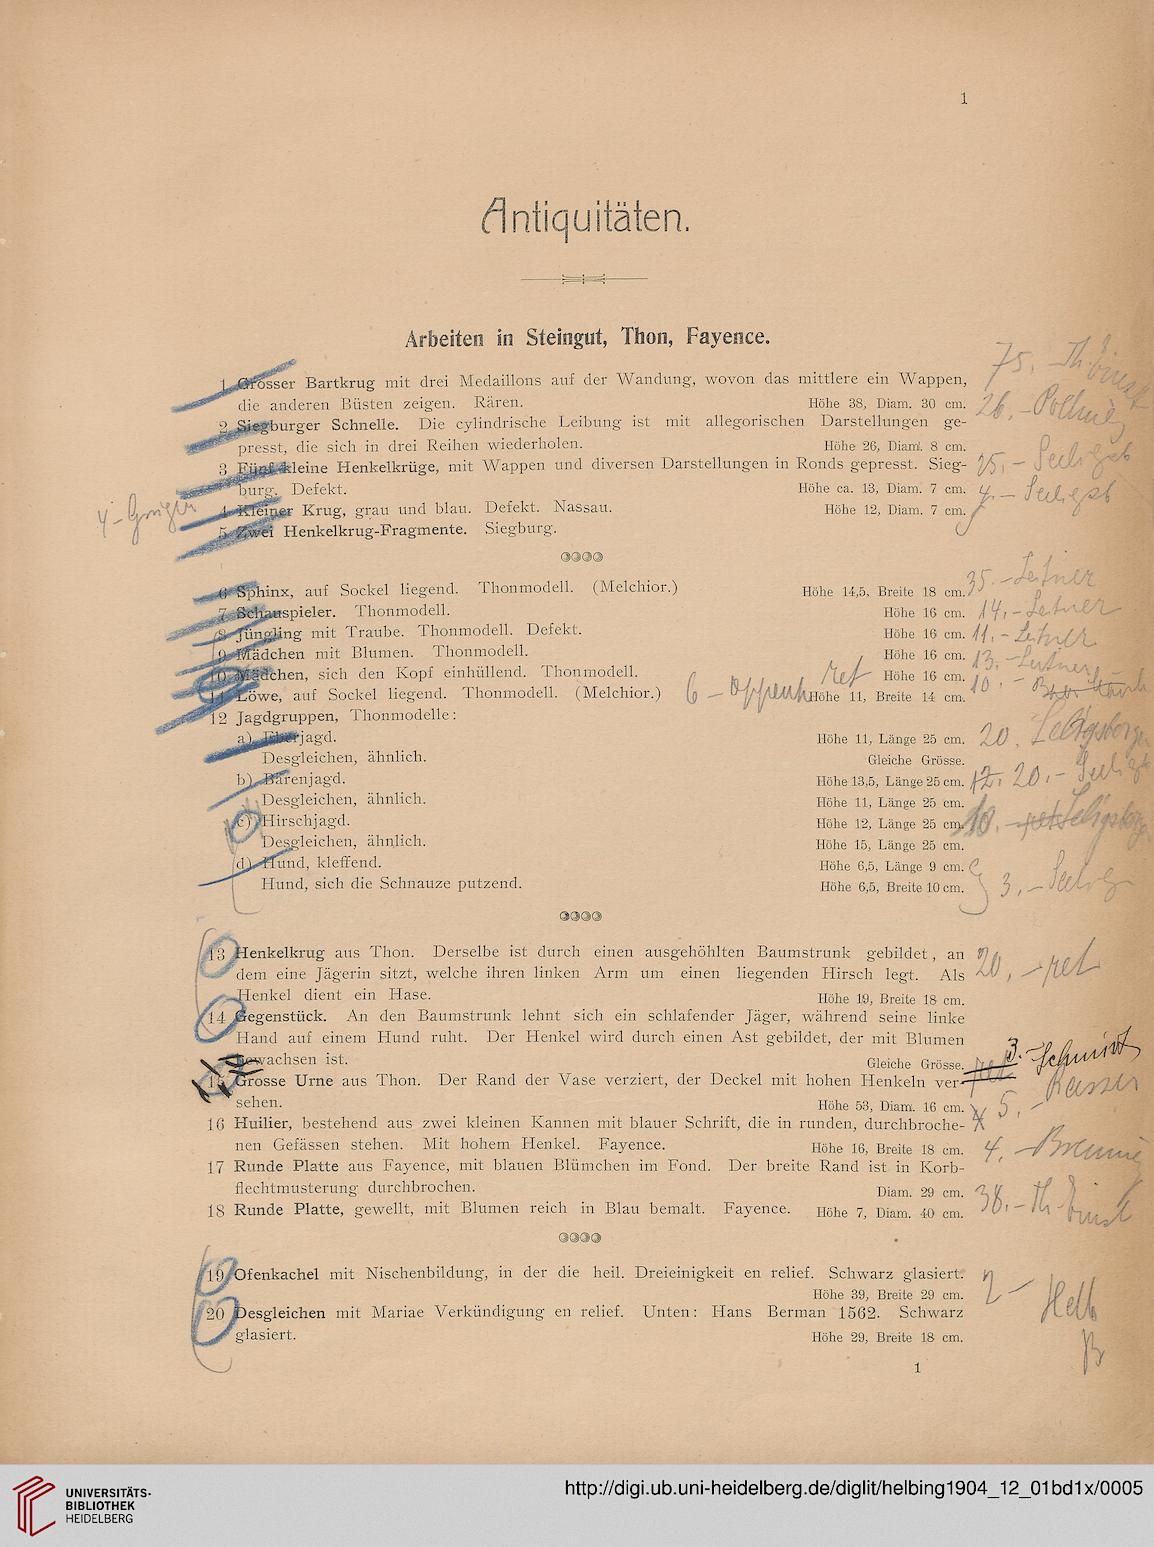 1
Antiquitäten.
Arbeiten in Steingut, Thon, Fayence.
1 Grosser Bartkrug mit drei Medaillons auf der Wandung, wovon das mittlere ein Wappen,
die anderen Büsten zeigen. Rären. Höhe 38, Diam. 30 cm.
75.- Th. Einst
2 Siegburger Schnelle. Die cylindrische Leibung ist mit allegorischen Darstellungen ge-
26.-
presst, die sich in drei Reihen wiederholen. Höhe 26, Diam. 8 cm.
3 Fünf kleine Henkelkrüge, mit Wappen und diversen Darstellungen in Ronds gepresst. Sieg-
burg. Defekt. Höhe ca. 13, Diam. 7 cm.
4 Kleiner Krug, grau und blau. Defekt. Nassau. Höhe 12, Diam. 7 cm.
4.-
5 Zwei Henkelkrug-Fragmente. Siegburg.
6 Sphinx, auf Sockel liegend. Thonmodell. (Melchior.) Höhe 14,5, Breite 18 cm. 35.- Leitner
7 Schauspieler. Thonmodell. Höhe 16 cm. 14.- Leitner
8 Jüngling mit Traube. Thonmodell. Defekt. Höhe 16 cm. 11.- Leitner
9 Mädchen mit Blumen. Thonmodell. Höhe 16 cm. 13.- Leitner
10 Mädchen, sich den Kopf einhüllend. Thonmodell. ret Höhe 16 cm. 10.-
11 Löwe, auf Sockel liegend. Thonmodell. (Melchior.) 6 - Oppenh Höhe 11, Breite 14 cm.
12 Jagdgruppen, Thonmodelle:
a) Eberjagd. Höhe 11, Länge 25 cm. 20.
Desgleichen, ähnlich. Gleiche Grösse.
b) Bärenjagd. Höhe 13,5, Länge 25 cm. 12. 20.-
Desgleichen, ähnlich. Höhe 11, Länge 25 cm.
c) Hirschjagd. Höhe 12, Länge 25 cm. 10.- ret
Desgleichen, ähnlich. Höhe 15, Länge 25 cm.
d) Hund, kleffend. Höhe 6,5, Länge 9 cm.
Hund, sich die Schnauze putzend. Höhe 6,5, Breite 10 cm. 3.-
13 Henkelkrug aus Thon. Derselbe ist durch einen ausgehöhlten Baumstrunk gebildet, an
dem eine Jägerin sitzt, welche ihren linken Arm um einen liegenden Hirsch legt. Als
20.- ret
Henkel dient ein Hase. Höhe 19, Breite 18 cm.
14 Gegenstück. An den Baumstrunk lehnt sich ein schlafender Jäger, während seine linke
Hand auf einem Hund ruht. Der Henkel wird durch einen Ast gebildet, der mit Blumen
bewachsen ist. Gleiche Grösse.
3.- Schmidt
15 Grosse Urne aus Thon. Der Rand der Vase verziert, der Deckel mit hohen Henkeln ver- ret
sehen. Höhe 53, Diam. 16 cm. 5.-
16 Huilier, bestehend aus zwei kleinen Kannen mit blauer Schrift, die in runden, durchbroche-
nen Gefässen stehen. Mit hohem Henkel. Fayence. Höhe 16, Breite 18 cm. 4.-
17 Runde Platte aus Fayence, mit blauen Blümchen im Fond. Der breite Rand ist in Korb-
flechtmusterung durchbrochen. Diam. 29 cm.
18 Runde Platte, gewellt, mit Blumen reich in Blau bemalt. Fayence. Höhe 7, Diam. 40 cm. 38.- Th. Einst
19 Ofenkachel mit Nischenbildung, in der die heil. Dreieinigkeit en relief. Schwarz glasiert.
Höhe 39, Breite 29 cm. 2 - Helb
20 Desgleichen mit Mariae Verkündigung en relief. Unten: Hans Berman 1562. Schwarz
glasiert. Höhe 29, Breite 18 cm.
1
UNIVERSITÄTS-
BIBLIOTHEK
HEIDELBERG
http://digi.ub.uni-heidelberg.de/diglit/helbing1904_12_01bd1x/0005